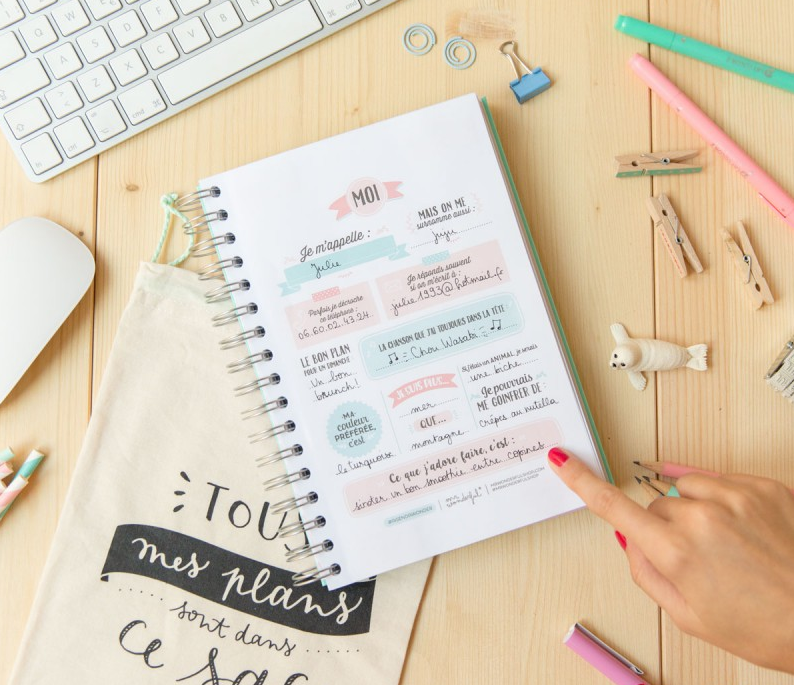 MOI
Je m'appelle :
Julie
MAIS ON ME
surnomme aussi :
Juju
Parfois je décroche
ce téléphone :
06.60.02.43.24
Je réponds souvent
si on m'écrit à :
julie.1993@hotmail.fr
LA CHANSON QUE J'AI TOUJOURS DANS LA TÊTE
Chou Wasabi
LE BON PLAN
POUR UN DIMANCHE
Un bon
brunch!
JE SUIS PLUS...
mer
QUE...
montagne
SI j'étais un ANIMAL, je serais
une biche
Je pourrais
ME GOINFRER DE :
crêpes au nutella
MA
couleur
PRÉFÉRÉE,
c'est
le turquoise
Ce que j'adore faire, c'est :
siroter un bon smoothie entre copines
mr.
wonderful*
TOUS
mes plans
sont dans
ce sac
Q W E R T Y
A S D F G
Z X C V B N M
cmd